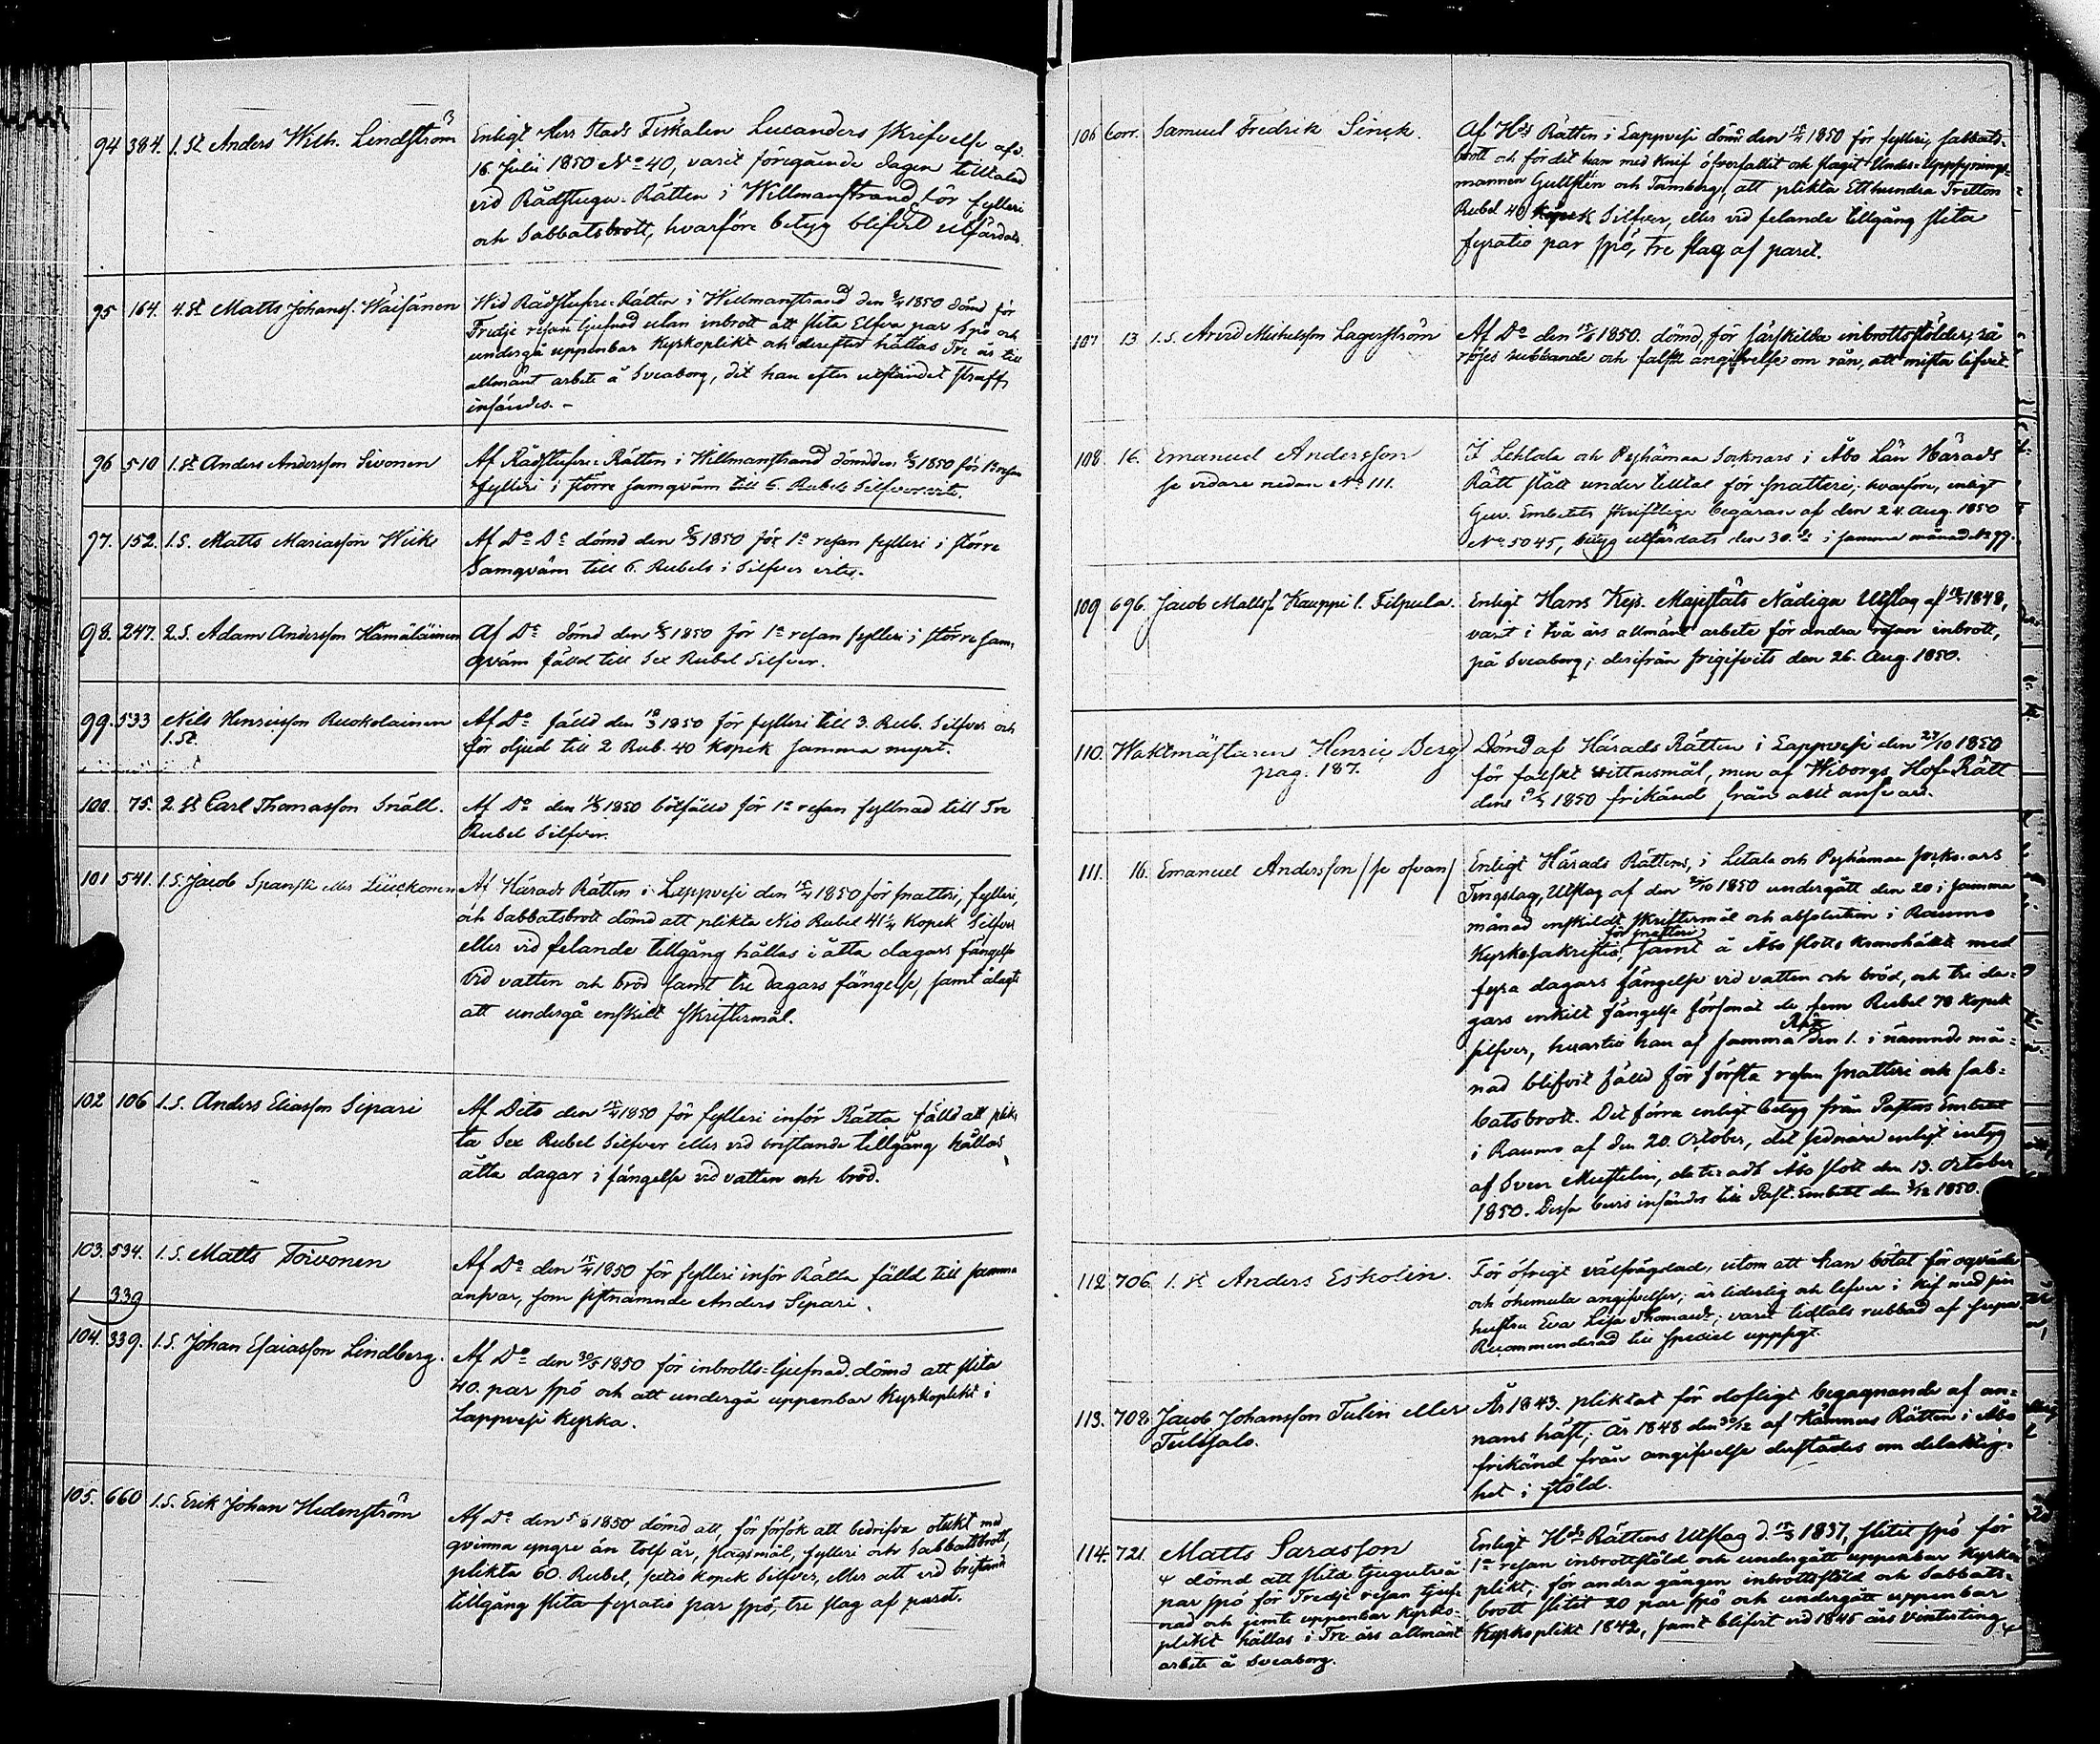 94 384. 1. St Anders Wilh. Lindström
Enligt Herr Stads Fiskalen Lucanders skrifvelse af d.
16. Julii 1850 No 40, varit föregående dagen tilltalad
vid Rådstugu-Rätten i Willmanstrand för fylleri
och Sabbatsbrott, hvarföre betyg blifvit utfärdats.
95 164. 4. St Matts Johanss. Wäisänen
Wid Rådstufvu-Rätten i Willmanstrand den 1850 dömd för
Tredje resan tjufnad utan inbrott att slita Elfva par Spö och
undergå uppenbar Kyrkoplikt och derefter hållas Tre år till
allmänt arbete å Sveaborg, dit han efter utståndet straff
insändes. -
96 510 1. St Anders Andersson Sivonen
Af Rådstufvu-Rätten i Willmanstrand dömd den 1850 för 1a resan
fylleri i större samqväm till 6. Rubels Silfver vite.
97. 152. 1. S. Matts Mariasson Wiike
Af Do Do dömd den 1850 för 1a resan fylleri i större
Samqväm till 6. Rubels i Silfver vites.
98. 247. 2. S. Adam Andersson Hämäläinen
Af Do dömd den 1850 för 1a resan fylleri i större sam,
qväm fälld till Sex Rubel Silfver.
99. 533 Nils Henricsson Ruokolainen
1. St.
Af Do fälld den 1850 för fylleri till 3. Rub. Silfver och
för oljud till 2 Rub. 40 Kopek samma mynt.
100. 75. 2. St Carl Thomasson Snäll.
Af Do den 1850 bötfälld för 1a resan fyllnad till Tre
Rubel Silfver.
101 541. 1. S. Jacob Spansk eller Liuckonen
Af Härads Rätten i Lappvesi den 15/4 1850 för snatteri, fylleri,
och Sabbatsbrott dömd att plikta Nio Rubel 41 1/4 Kopek Silfver
eller vid felande tillgång hållas i åtta dagars fängelse
vid vatten och bröd samt tre dagars fängelse, samt ålagt
att undergå enskilt Skriftermål.
102 106 1. S. Anders Eliasson Sipari
Af Dito den 15/4 1850 för fylleri inför Rätta fälld att plik,
ta Sex Rubel Silfver eller vid bristande tillgång hållas
åtta dagar i fängelse vid vatten och bröd.
103. 534. 1. S. Matts Toivonen
339
Af Do den 15/4 1850 för fylleri inför Rätta fälld till samma
ansvar, som sistnämnde Anders Sipari.
104. 339. 1. S. Johan Esaiasson Lindberg.
Af Do den 30/5 1850 för inbrotts-tjufnad dömd att slita
40. par spö och att undergå uppenbar Kyrkoplikt i
Lappvesi Kyrka.
105. 660 1. S. Erik Johan Hedenström
Af Do den 1850 dömd att, för försök att bedrifva otukt med
qvinna yngre än tolf år, slagsmål, fylleri och Sabbatsbrott,
plikta 60. Rubel, sextio Kopek Silfver, eller att vid bristande
tillgång slita fyratio par spö, tre slag af paret.
106 Corr. Samuel Fredrik Sinck.
Af Hds Rätten i Lappvesi dömd den 1850 för fylleri, sabbats-
brott och för det han med knif öfverfallit och slagit Under-Uppsynings-
mannen Gullstén och Tamberg, att plikta Etthundra Tretton
Rubel 40 Kopek Silfver, eller vid felande tillgång slita
fyratio par spö, tre slag af paret.
107 13 1. S. Arvid Michelsson Lagerström
Af Do den 1850. dömd, för särskilda inbrottsstölder,
rubbande och falsk angifvelse om rån, att mista lifvet.
108 16. Emanuel Andersson
se vidare nedan No 111.
I Letala och Pyhämaa Socknars i Åbo Län Härads
Rätt stått under tilltal för snatteri; hvarföre, enligt
Guv. Embetets skriftliga begäran af den 24. Aug. 1850
No 5045, betyg utfärdats den 30. i samma månad No 99.
109 696. Jacob Mattss. Kauppi l. Filpula.
Enligt Hans Kejs. Majestäts Nådiga Utslag af 1848,
varit i två års allmänt arbete för andra resan inbrott,
på Sveaborg; derifrån frigifvits den 26. Aug. 1850.
110. Waktmästaren Henric Berg
pag. 187.
Dömd af Härads Rätten i Lappvesi den 1850
för falskt vittnesmål, men af Wiborgs Hof-Rätt
den 1850 frikänd från allt ansvar.
111. 16. Emanuel Andersson /se ofvan/
Enligt Härads Rättens, i Letala och Pyhämaa socknars
Tingslag, Utslag af den 1850 undergått den 20 i samma
månad enskildt skriftermål och absolution i Raumo
för snatteri
Kyrkosakristia, samt å Åbo slotts kronohäkte med
fyra dagars fängelse vid vatten och bröd, och tre da-
gars enkilt fängelse försonat de fem Rubel 70 kopek
Rätt
silfver, hvartill han af samma den 1. i nämnde må-
nad blifvit fälld för första resan snatteri och sab-
batsbrott. Det förra enligt betyg från Pastors Embetet
i Raumo af den 20. October, det sednare enligt intyg
af Sven Mustelin, dateradt Åbo slott den 13. October
1850. Dessa bevis insändes till Past. Embetet den 1850.
112 706 1. St Anders Eskolin.
För öfrigt välfrägdad, utom att han bötat för oqväde
och ohemula angifvelser; är liderlig och lefver i kif med sin
hustru Eva Lisa Thomasdr; varit tidtals rubbad af
Recommenderad till speciel uppsigt.
113. 708. Jacob Johansson Tulin eller
Tulisalo.
År 1843. pliktat för olofligt begagnande af an-
nans häst; År 1848 den af Kämners Rätten i Åbo
frikänd från angifvelse derstädes om delaktig-
het i stöld.
114. 721. Matts Sarasson
dömd att slita tjugutvå
par spö för Tredje resan tjuf-
nad och jemte uppenbar kyrko-
plikt hållas i Tre års allmänt
arbete å Sveaborg.
Enligt Hds Rättens Utslag d. 1837, slitit spö för
1a resan inbrottsstöld och undergått uppenbar Kyrko
plikt; för andra gången inbrottsstöld och Sabbats-
brott slitit 20 par spö och undergått uppenbar
Kyrkoplikt 1842, samt blifvit vid 1845 års Vinterting